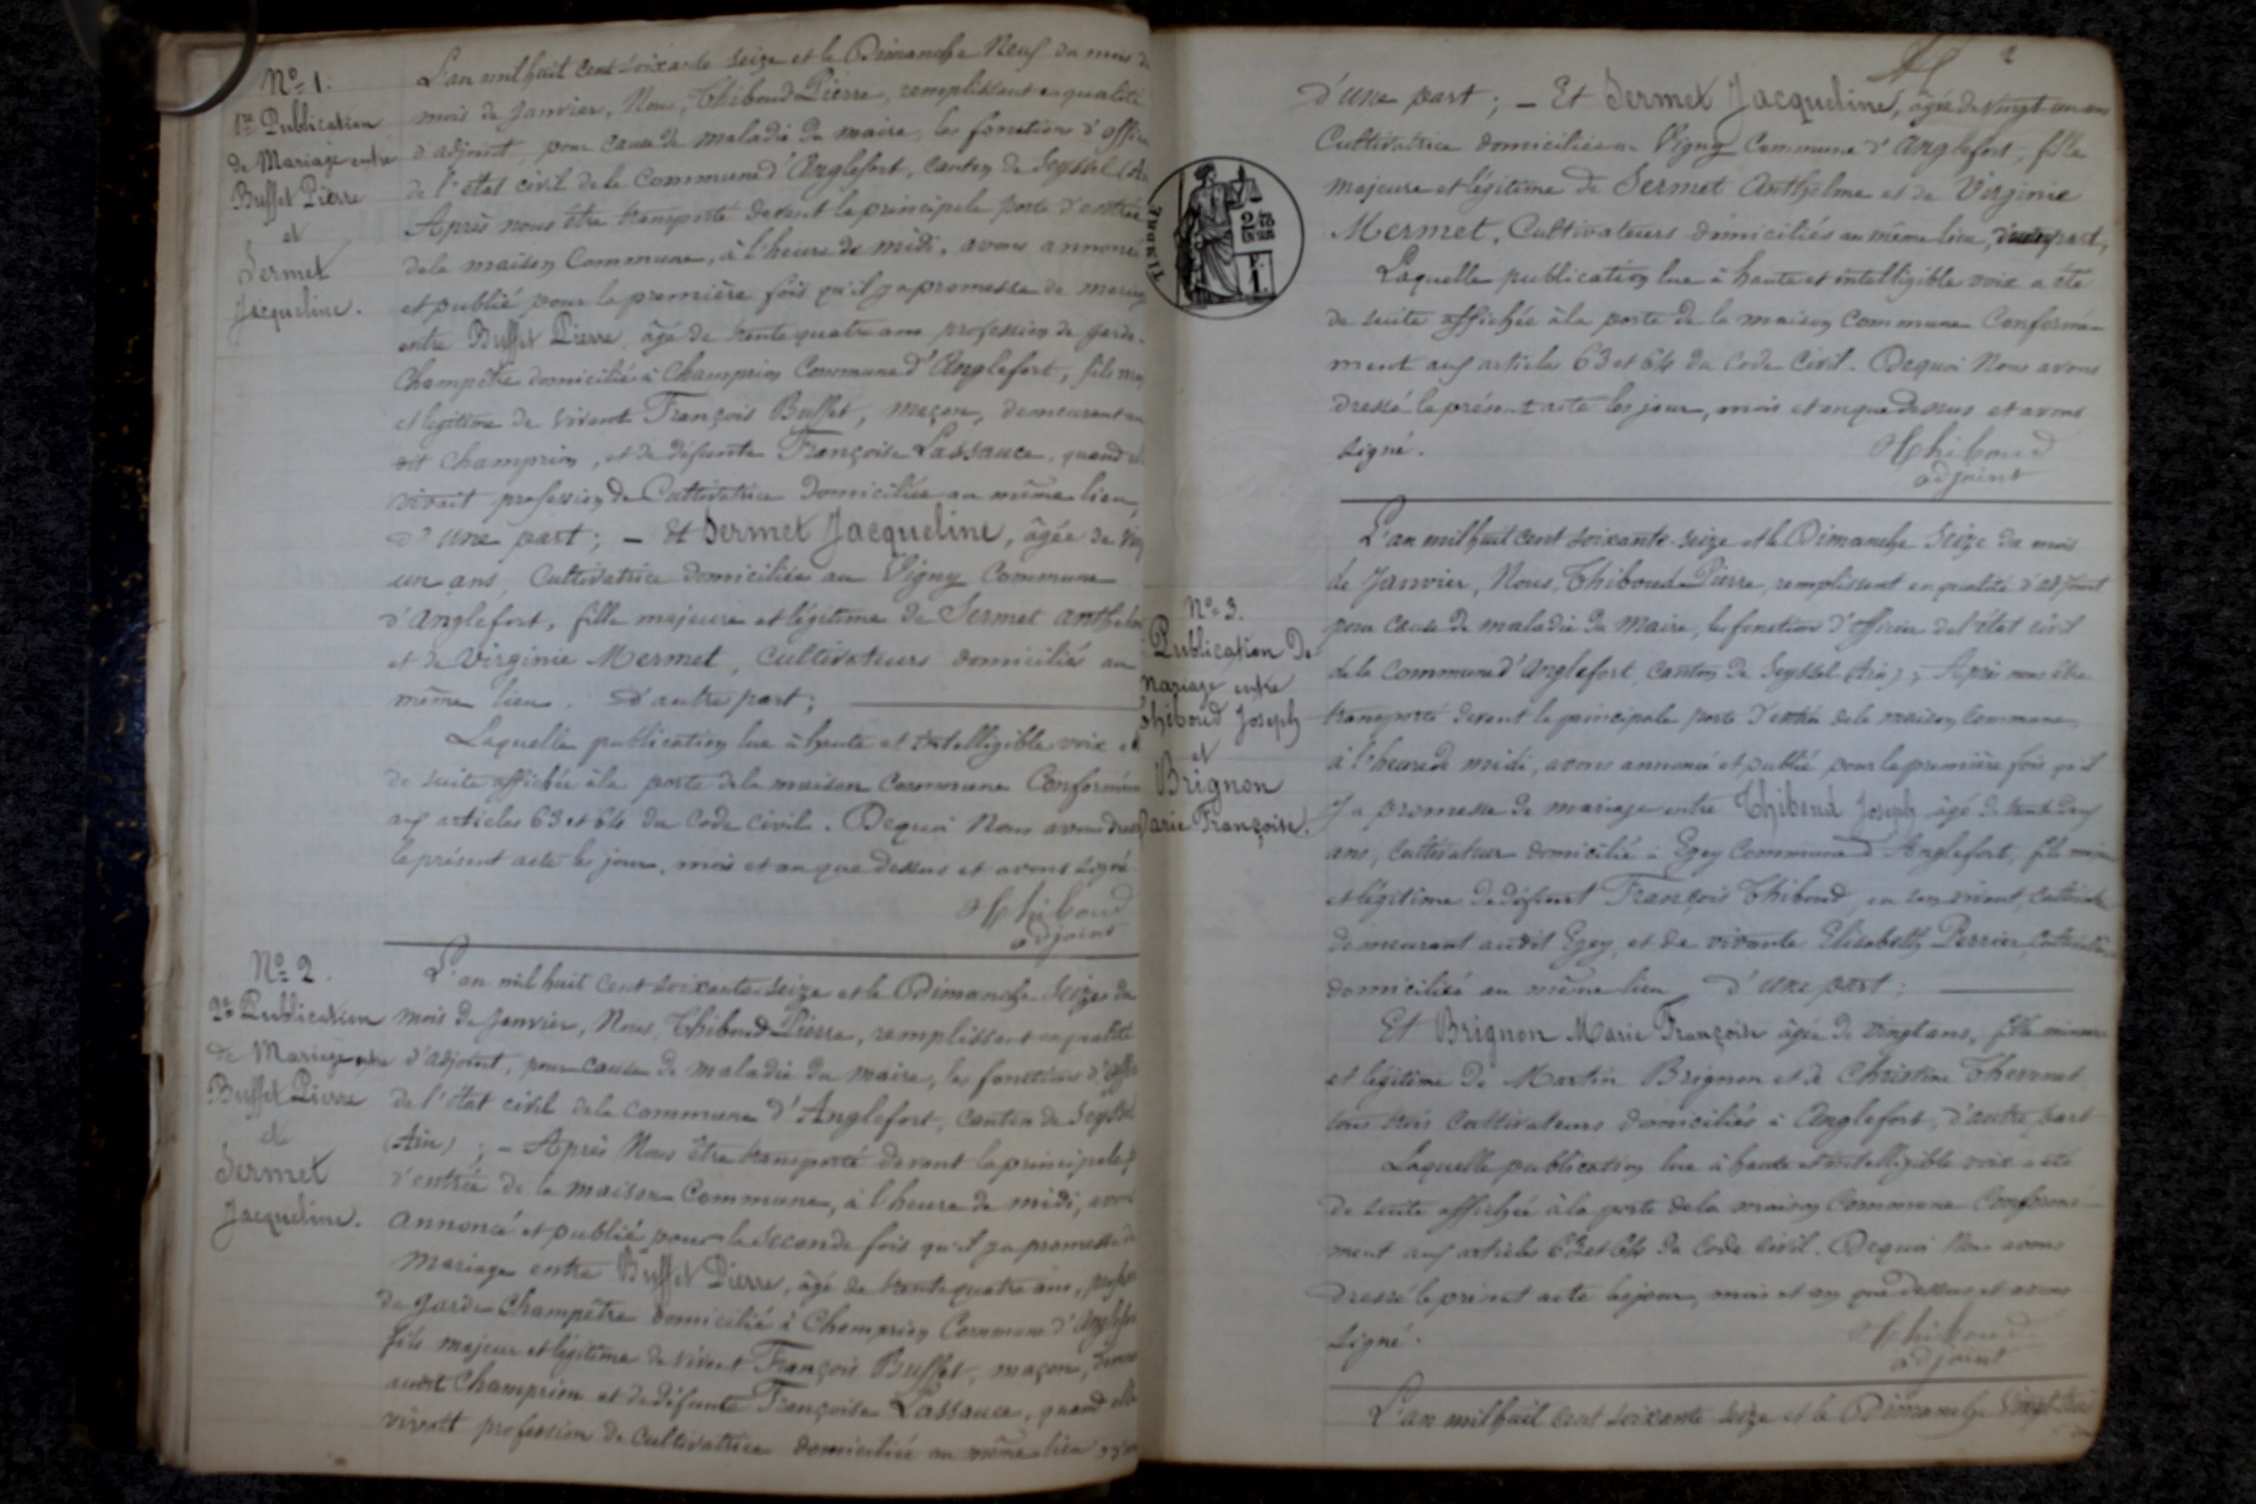 N° 1.
1re Publication
de Mariage entre
Buffet Pierre
et
Sermet
Jacqueline.
L'an mil huit cent soixante seize et le Dimanche Neuf du mois de
mois de Janvier, Nous, Thiboud Pierre, remplissant en qualité
d'adjoint, pour cause de maladie du maire, les fonctions d'offici
de l'état civil de la Commune d'Anglefort, canton de Seyssel (Ai
Après nous être transporté devant la principale porte d'entrée
de la maison Commune, à l'heure de midi, avons annoncé
et publié pour la première fois qu'il y a promesse de mariag
entre Buffet Pierre, âgé de trente quatre ans profession de garde-
Champêtre domicilié à Champrion Commune d'Anglefort, fils maj
et légitime de vivant François Buffet, maçon, demeurant au
dit Champrion, et de défunte Françoise Lassauce, quand el
vivait profession de Cultivatrice domiciliée au même lieu,
d'une part; – Et Sermet Jacqueline, âgée de ving
un ans, Cultivatrice domiciliée au Vigny Commune
d'Anglefort, fille majeure et légitime de Sermet Anthelm
et de Virginie Mermet, Cultivateurs domiciliés au
même lieu. d'autre part;
Laquelle publication lue à haute et intelligible voix a
de suite affichée à la porte de la maison Commune Conformém
aux articles 63 et 64 du Code civil. De quoi Nous avons dress
le présent acte les jour, mois et an que dessus et avons signé
Thiboud
adjoint
N° 2.
2e Publication
de Mariage entre
Buffet Pierre
et
Sermet
Jacqueline.
L'an mil huit cent soixante seize et le Dimanche Seize du
mois de Janvier, Nous, Thiboud Pierre, remplissant en qualité
d'adjoint, pour cause de maladie du maire, les fonctions d'offi
de l'état civil de la commune d'Anglefort, canton de Seyssel
(Ain); – Après Nous être transporté devant la principale p
d'entrée de la maison Commune, à l'heure de midi, avon
annoncé et publié pour la seconde fois qu'il y a promesse de
Mariage entre Buffet Pierre, âgé de trente quatre ans, profes
de garde Champêtre domicilié à Champrion Commune d'Anglefor
fils majeur et légitime de vivant François Buffet, maçon, demeu
audit Champrion et de défunte Françoise Lassauce, quand elle
vivait profession de Cultivatrice domiciliée au même lieu
2
d'une part; – Et Sermet Jacqueline, âgée de vingt un ans
Cultivatrice domiciliée au Vigny Commune d'Anglefort, fille
majeure et légitime de Sermet Anthelme et de Virginie
Mermet, Cultivateurs domiciliés au même lieu, d'autre part;
Laquelle publication lue à haute et intelligible voix a été
de suite affichée à la porte de la maison Commune Conformé-
ment aux articles 63 et 64 du Code Civil. De quoi Nous avons
dressé le présent acte les jour, mois et an que dessus et avons
signé.
Thiboud
adjoint
N° 3.
Publication de
Mariage entre
Thiboud Joseph
et
Brignon
Marie Françoise.
L'an mil huit cent soixante-seize et le Dimanche Seize du mois
de Janvier, Nous, Thiboud Pierre, remplissant en qualité d'adjoint
pour cause de maladie du Maire, les fonctions d'officier de l'état civil
de la Commune d'Anglefort, canton de Seyssel (Ain); Après nous être
transporté devant la principale porte d'entrée de la maison Commune,
à l'heure de midi, avons annoncé et publié pour la première fois qu'il
y a promesse de mariage entre Thiboud Joseph âgé de trente deux
ans, Cultivateur domicilié à Egey Commune d'Anglefort, fils majeur
et légitime de défunt François Thiboud, en son vivant, Cultivateur
demeurant audit Egey, et de vivante Elisabeth Perrier, Cultivatrice
domicilié au même lieu d'une part;
Et Brignon Marie Françoise âgée de vingt ans, fille mineure
et légitime de Martin Brignon et de Christine Thevenet
tous trois Cultivateurs domiciliés à Anglefort, d'autre part
Laquelle publication lue à haute et intelligible voix a été
de suite affichée à la porte de la maison Commune Conformé-
ment aux articles 63 et 64 du Code civil. De quoi Nous avons
dressé le présent acte les jour, mois et an que dessus et avons
signé.
Thiboud
adjoint
L'an mil huit cent soixante seize et le Dimanche Vingt trois